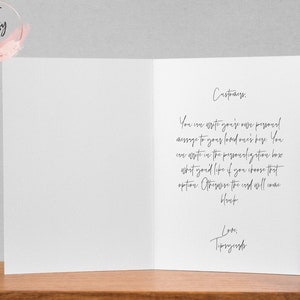 Customers,
You can write your own personal
message to your loved one's here. You
can write in the personalization box
what you'd like if you choose that
option. Otherwise the card will come
blank.
Love,
Tipsycards